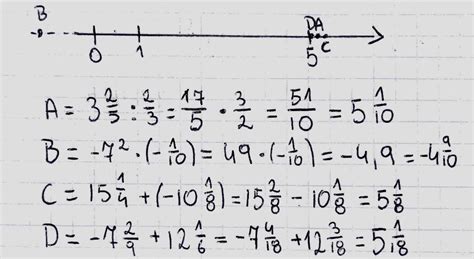 B DA
0 1 5 C
A = 3 2/5 : 2/3 = 17/5 · 3/2 = 51/10 = 5 1/10
B = -7² · (-1/10) = 49 · (-1/10) = -4,9 = -4 9/10
C = 15 1/4 + (-10 1/8) = 15 2/8 - 10 1/8 = 5 1/8
D = -7 2/9 + 12 1/6 = -7 4/18 + 12 3/18 = 5 1/18